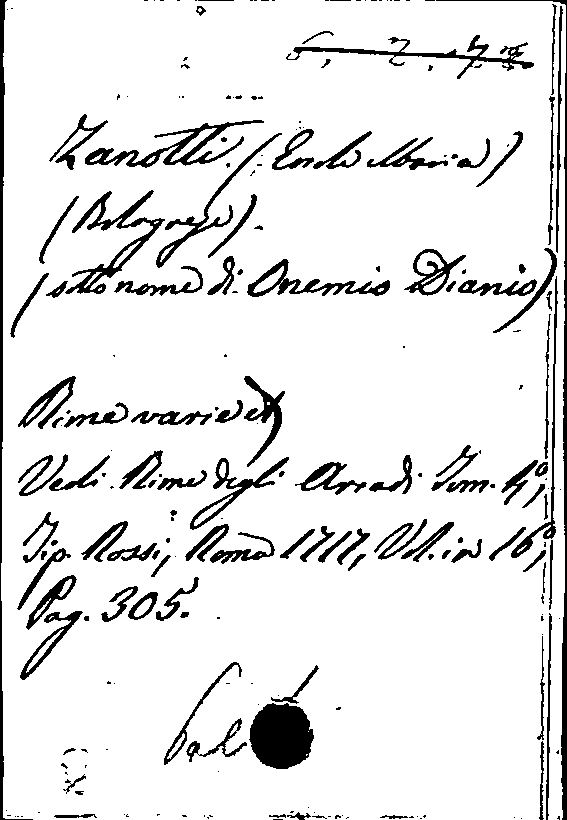 Zanotti. (Ercole Maria)
(Bolognese).
(sotto nome di Onemio Dianio)
Rime varie
Vedi Rime degli Arcadi Tom. 4°,
Tip. Rossi, Roma 1717, Vol. in 16°,
Pag. 305.